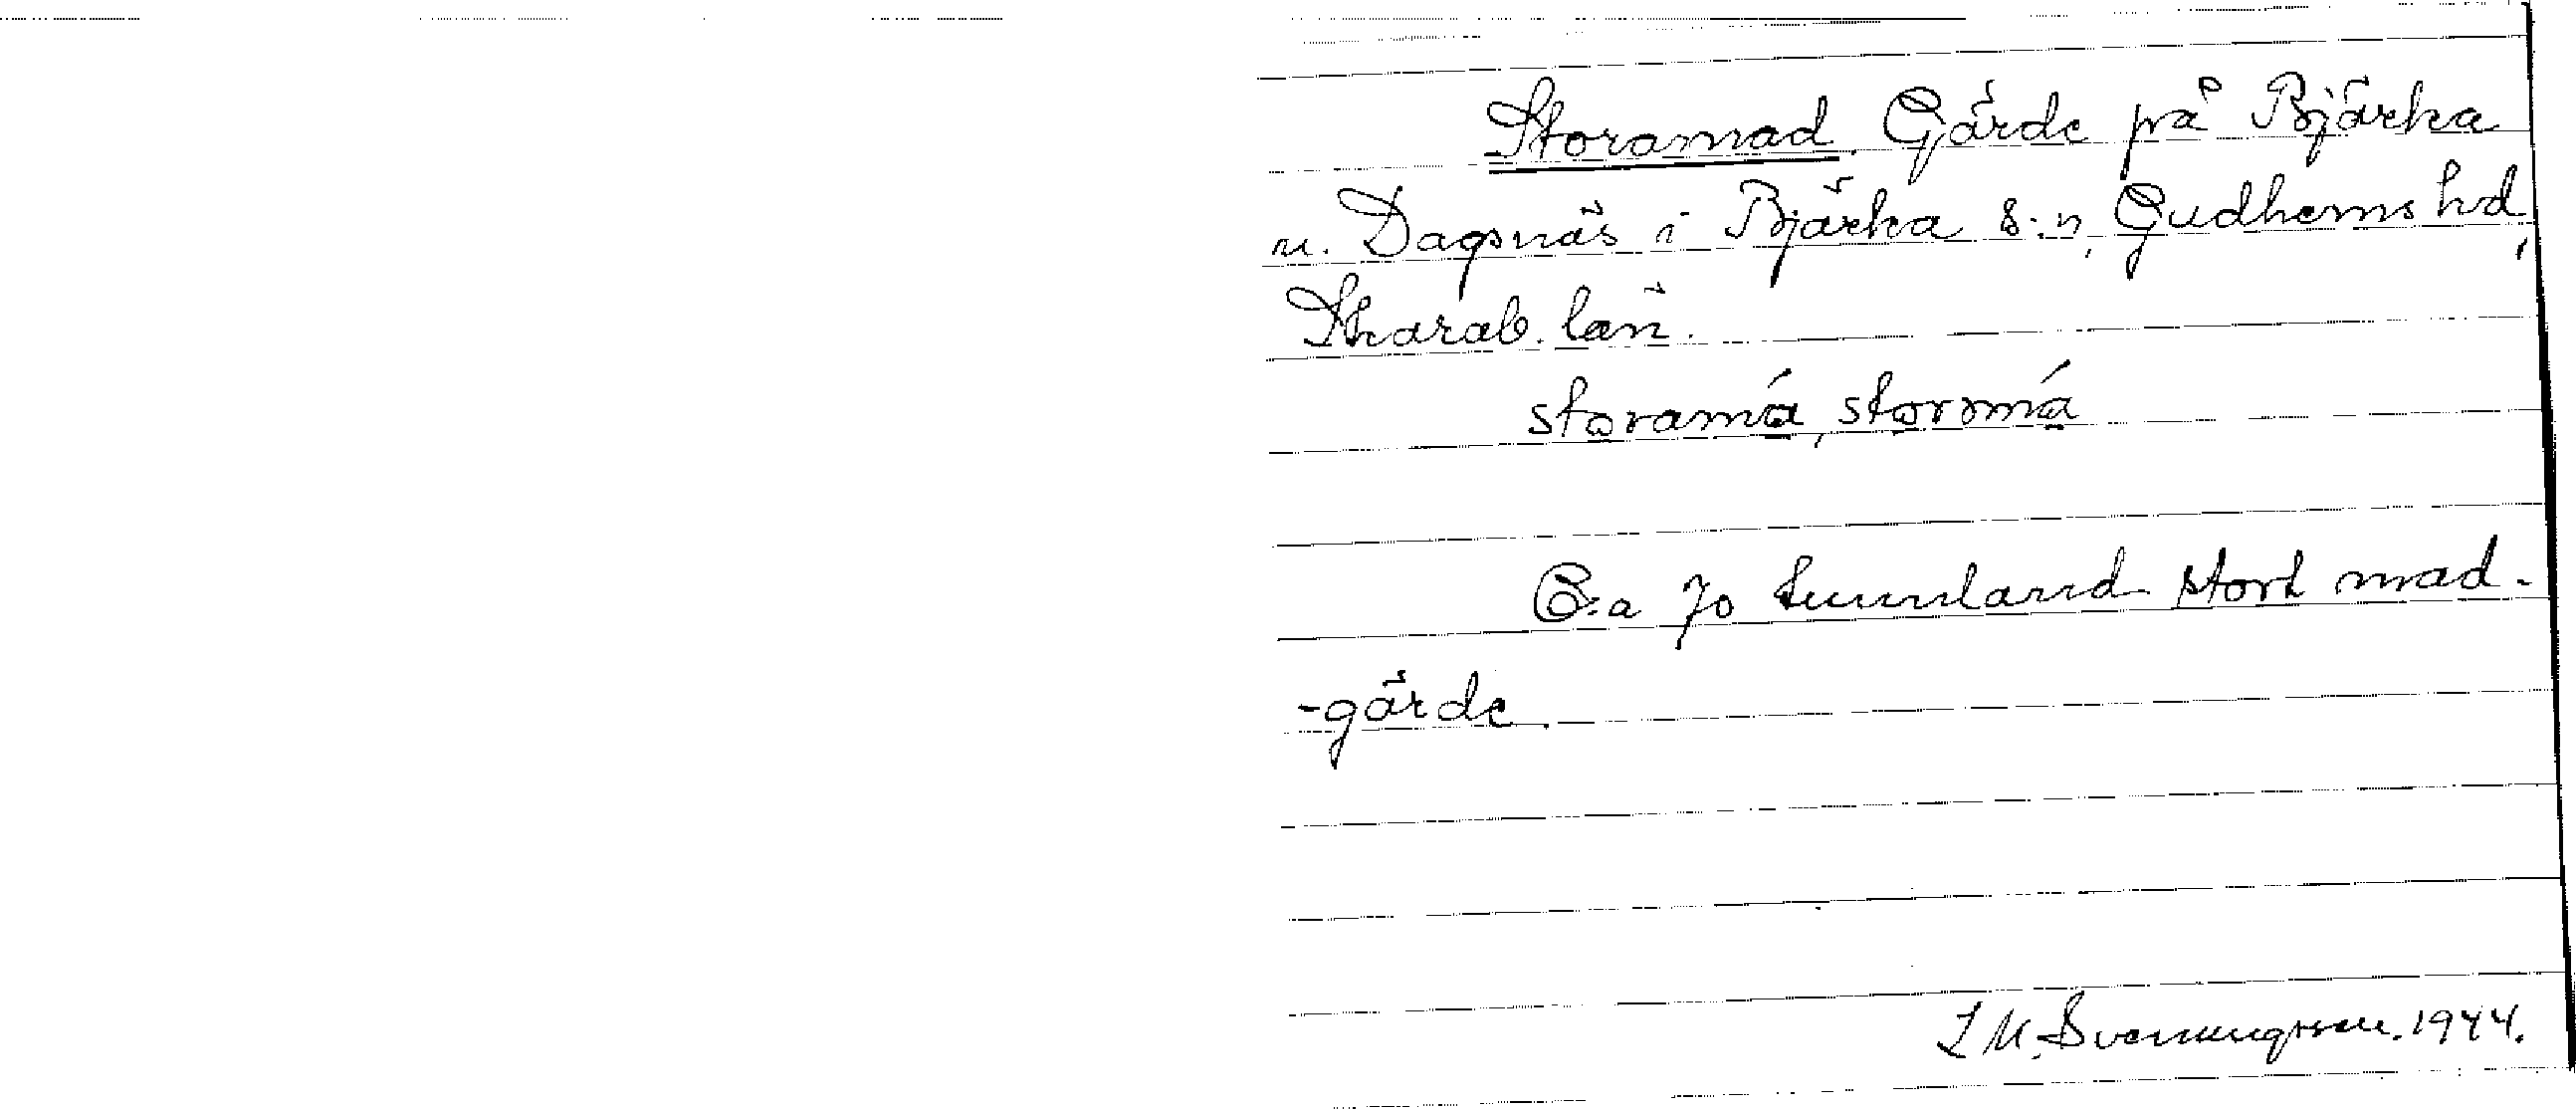 Storamad. Gärde på Bjärka
u. Dagsnäs i Bjärka s:n, Gudhems hd,
Skarab. län.
storamá, stormá
C:a 70 tunnland stort mad-
-gärde.
L M. Svenungsson. 1944.